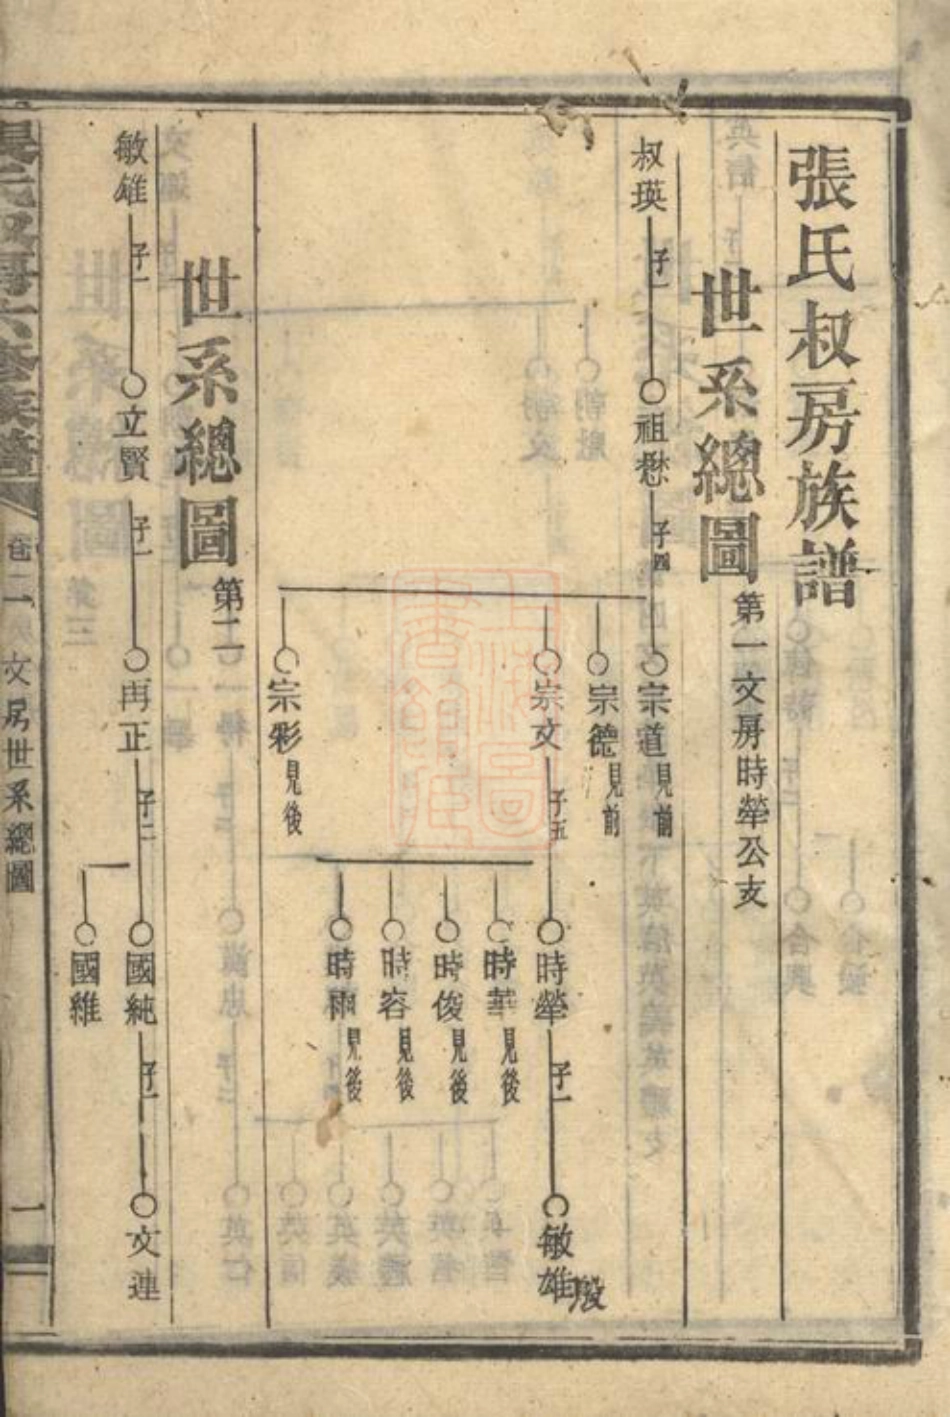 張氏叔房族譜
世系總圖 第一 文房時犖公支
叔瑛 子一 祖懋 子四 宗道 見前
宗德 見前
宗文 子五 時犖 子一 敏雄
時華 見後
時俊 見後
時容 見後
時雨 見後
宗彩 見後
世系總圖 第二
敏雄 子一 立賢 子一 再正 子二 國純 子一 文連
國維
張氏叔房六修族譜 卷二 文房世系總圖 一